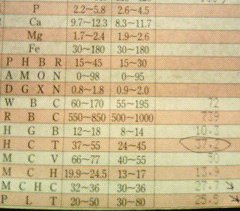 P 2.2~5.8 2.6~4.5
Ca 9.7~12.3 8.3~11.7
Mg 1.7~2.4 1.9~2.6
Fe 30~180 30~180
PHBR 15~45 15~30
AMON 0~98 0~95
DGXN 0.8~1.9 0.9~2.0
WBC 60~170 55~195 72
RBC 550~850 500~1000 739
HGB 12~18 8~14 10.3
HCT 37~55 24~45 37.2
MCV 66~77 40~55
MCH 19.9~24.5 13~17 13.9
MCHC 32~36 30~36 27.7
PLT 20~50 30~80 25.8